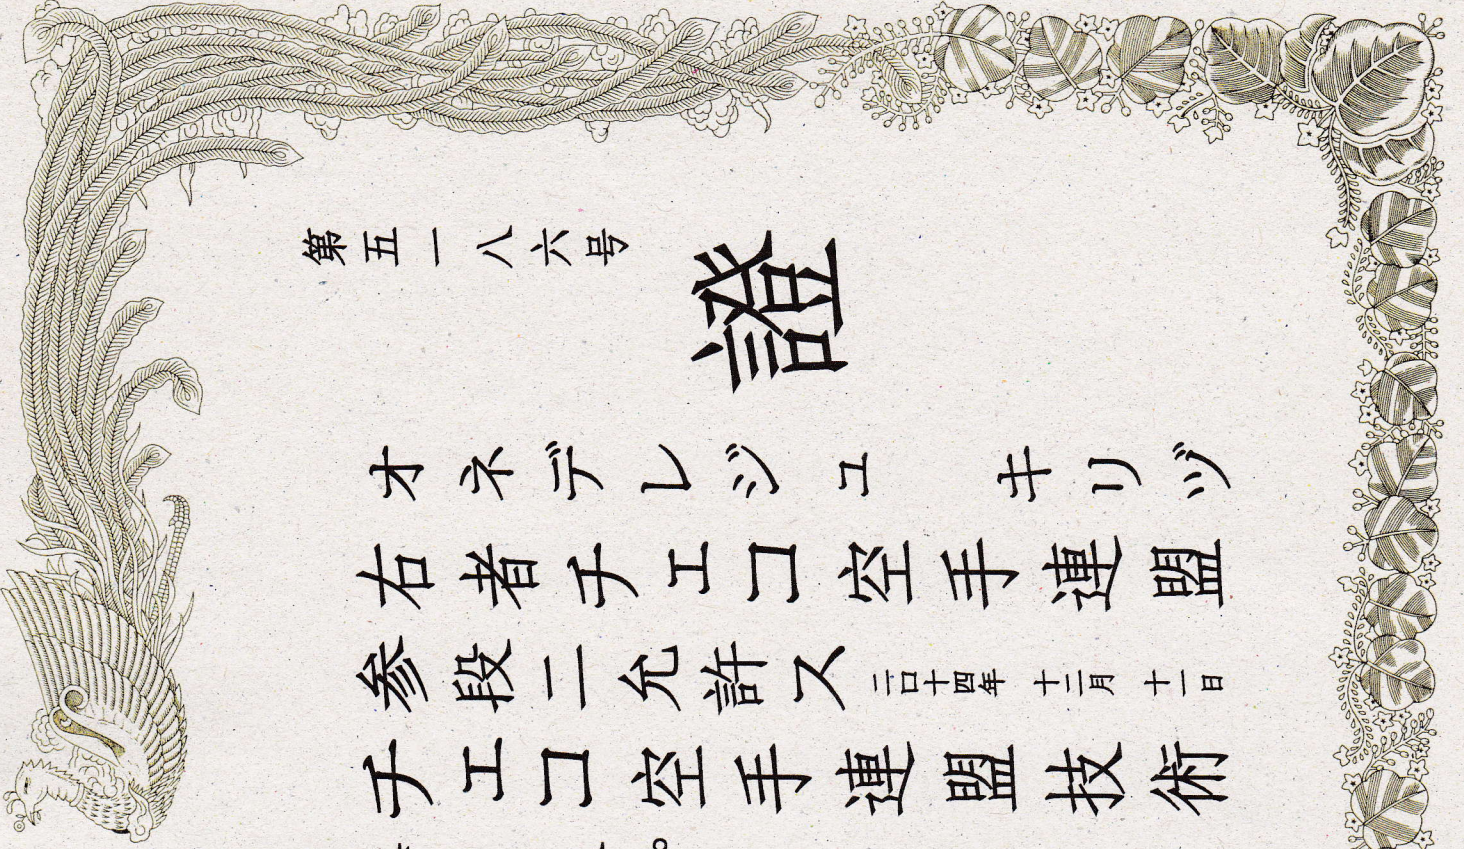 第五一八六号
證
オネデレジュ キリヅ
右者チエコ空手連盟
参段ニ允許ス 二口十四年 十二月 十一日
チエコ空手連盟技術